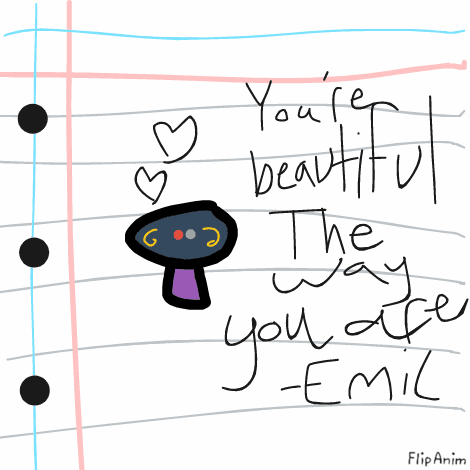 You're
beautiful
The
way
you are
-EMIL
FlipAnim